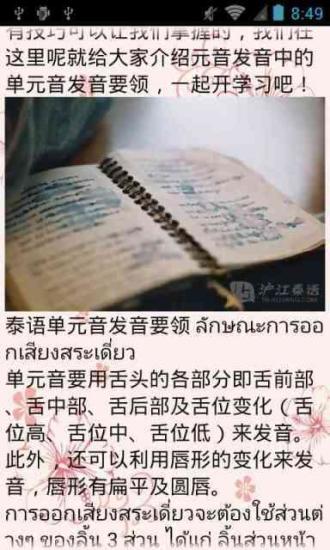 8:49
有技巧可以让我们掌握的，我们在
这里呢就给大家介绍元音发音中的
单元音发音要领，一起开学习吧！
沪江泰语
泰语单元音发音要领 ลักษณะการออ
กเสียงสระเดี่ยว
单元音要用舌头的各部分即舌前部
、舌中部、舌后部及舌位变化（舌
位高、舌位中、舌位低）来发音。
此外，还可以利用唇形的变化来发
音，唇形有扁平及圆唇。
การออกเสียงสระเดี่ยวจะต้องใช้ส่วนต่
างๆ ของลิ้น 3 ส่วน ได้แก่ ลิ้นส่วนหน้า